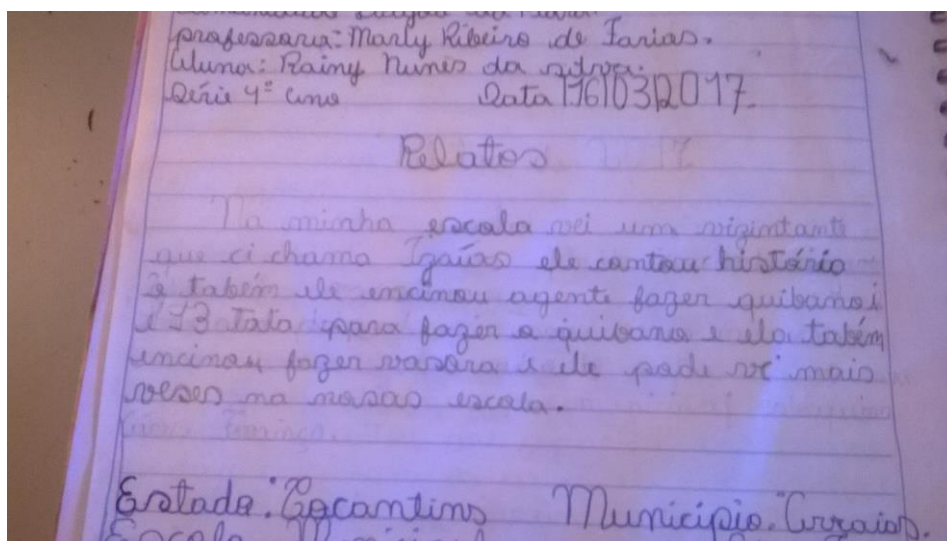 professora: Marly Ribeiro de Farias.
Aluna: Rainy Nunes da silva.
Série 4º ano Data 16|03|2017
Relatos
Na minha escola vei um vizintante
que ci chama Izaías ele contou história
e tabém ele encinou agente fazer quibanoi
e 13 Tala para fazer o quibano e ela tabém
encinou fazer vasora e ele pode vê mais
veses na nosas escola.
Estado: Tocantins Município: Arraias.
Escola Municipal